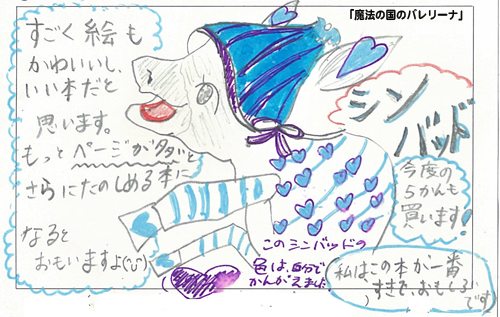 「魔法の国のバレリーナ」
すごく絵も
かわいいし、
いい本だと
思います。
もっとページが多いと
さらにたのしめる本に
なると
おもいますよ
シン
バッド
今度の
5かんも
買います!
このシンバッドの
色は、自分で
かんがえました
私はこの本が一番
すきで、おもしろい
です